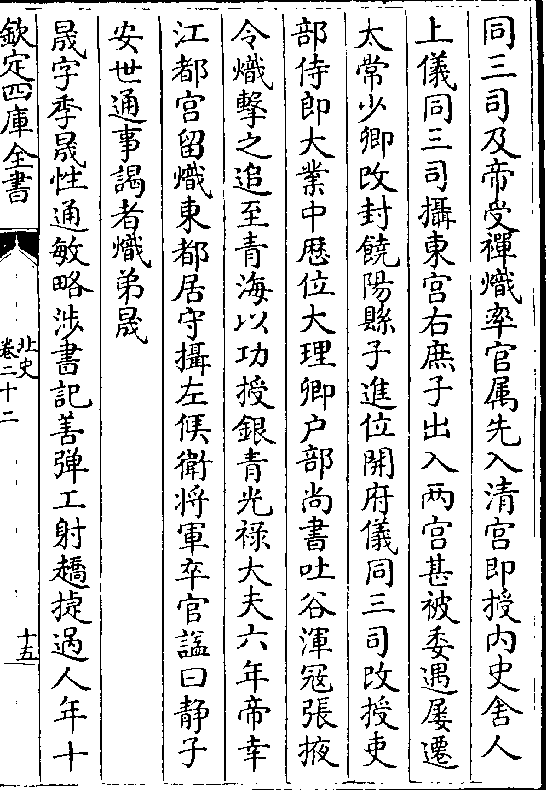 同三司及帝受禪熾率官属先入清宮即授内史舍人
上儀同三司攝東宮右庶子出入两宫甚被委遇屡遷
太常少卿改封饒陽縣子進位開府儀同三司改授吏
部侍郎大業中厯位大理卿户部尚書吐谷渾冦張掖
令熾擊之追至青海以功授銀青光禄大夫六年帝幸
江都宫留熾東都居守攝左候衛將軍卒官諡曰静子
安世通事謁者熾弟晟
晟字季晟性通敏略涉書記善弹工射趫捷過人年十
欽定四庫全書
北史
卷二十二
十五